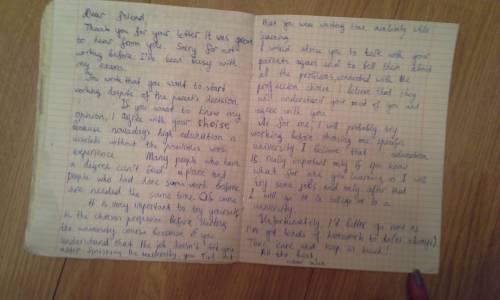 Dear friend,
Thank you for your letter. It was great
to hear from you. Sorry for not
writing before I've been busy with
my exams.
You write that you want to start
working despite of the parent's decision.
If you want to know my
opinion, I agree with your choise
because nowadays high education is
useless without the practise work
experience. Many people who have
a degree can't find a place and
people who had done some work before
are needed the same time. Of course
it is very important to try yourself
in the chosen profession before starting
the university course because if you
understand that the job doesn't fit you
after finishing the university, you
that you were wasting time
I would advise you to talk with your
parents again and to tell them about
all the problems connected with the
profession choice. I believe that they
will understand your most of you and
agree with you.
As for me, I will probably try
working before choosing one specific
university. I believe that education
is really important only if you know
what for are you learning so I will
try some jobs and only after that
I will go to a college or to a
university.
Unfortunately I'd better go now as
I've got loads of homework to do (as always).
Take care and keep in touch!
All the best,